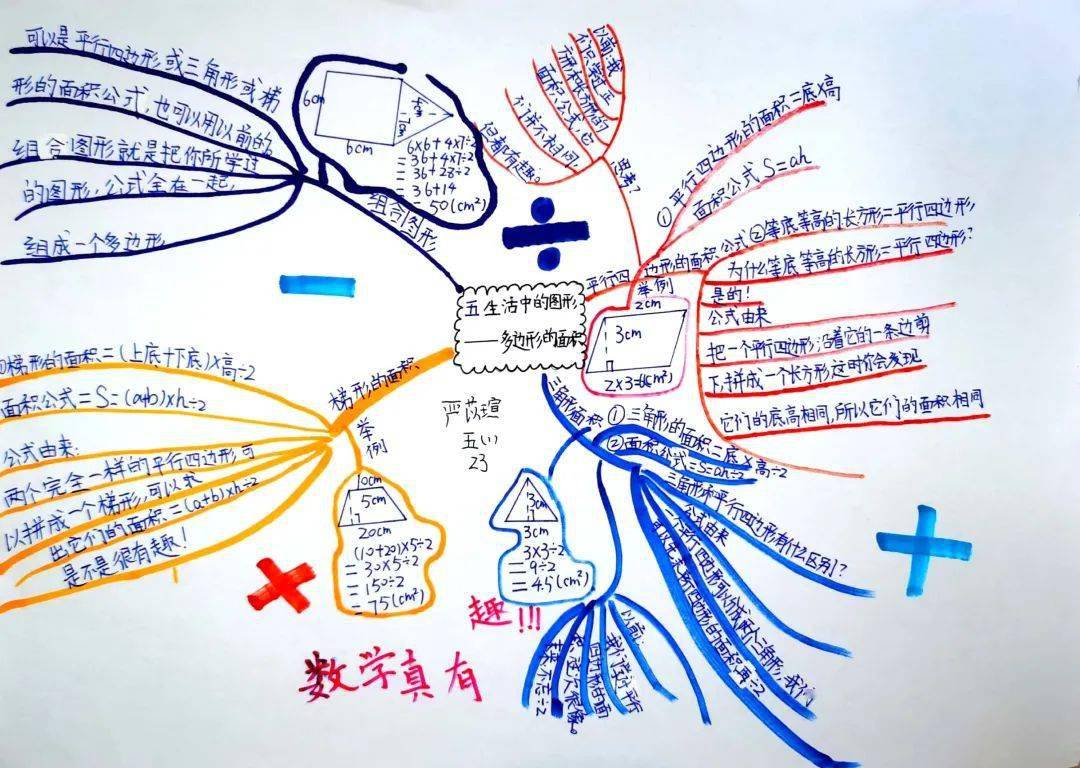 五 生活中的图形
——多边形的面积
严苡瑄
五(1)
23
可以是平行四边形或三角形或梯
形的面积公式,也可以用以前的
组合图形就是把你所学过
的图形,公式全在一起,
组成一个多边形
组合图形
6cm
6cm
6×6+4×7÷2
=36+4×7÷2
=36+28÷2
=36+14
=50(cm²)
思考?
以前,我
们只学过正
方形和长方形的
面积公式,它
们并不相同,
但都有趣。
平行四边形的面积公式
①平行四边形的面积=底×高
面积公式S=ah
②等底等高的长方形=平行四边形,
为什么等底等高的长方形=平行四边形?
是的!
公式由来
把一个平行四边形,沿着它的一条边剪
下,拼成一个长方形,这时你会发现
它们的底高相同,所以它们的面积相同
举例
2cm
3cm
2×3=6(cm²)
梯形的面积
①梯形的面积=(上底+下底)×高÷2
面积公式=S=(a+b)×h÷2
公式由来:
两个完全一样的平行四边形,可
以拼成一个梯形,可以求
出它们的面积=(a+b)×h÷2
是不是很有趣!
举例
10cm
5cm
20cm
(10+20)×5÷2
=30×5÷2
=150÷2
=75(cm²)
三角形面积
①三角形的面积=底×高÷2
②面积公式=S=ah÷2
三角形和平行四边形有什么区别?
公式由来
一个平行四边形可以分成两个三角形,我们
可以先求平行四边形的面积再÷2
3cm
3cm
3×3÷2
=9÷2
=4.5(cm²)
以前,
我们学过平行
四边形的面
数学真有
趣!!!